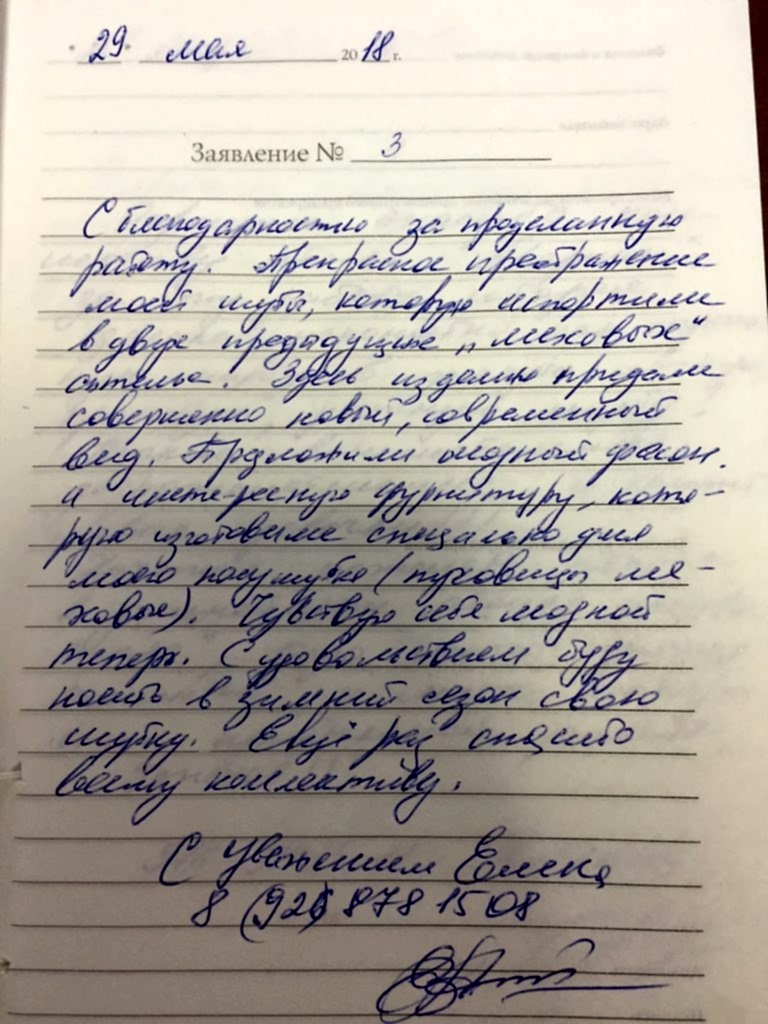 "29" мая 2018 г.
Заявление № 3
С благодарностью за проделанную
работу. Прекрасное преображение
моей шубы, которую испортили
в двух предыдущих „меховых"
ателье. Здесь изделию придали
совершенно новый, современный
вид. Предложили модный фасон
и интересную фурнитуру, кото-
рую изготовили специально для
моего полушубка (пуховицы ме-
ховые). Чувствую себя модной
теперь. С удовольствием буду
носить в зимний сезон свою
шубку. Ещё раз спасибо
всему коллективу.
С уважением Елена
8 (926 878 15 08